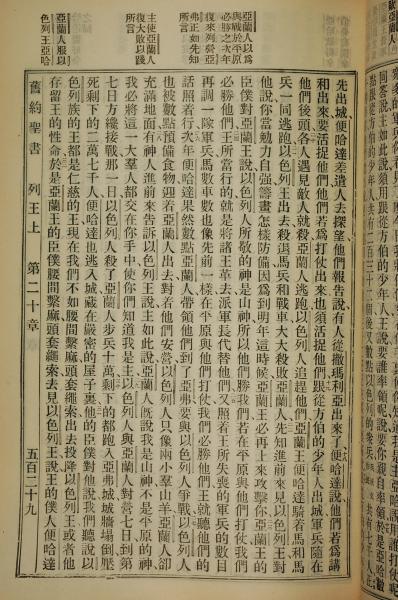 先出城便哈達差遣人去探望他們報告說有人從撒瑪利亞出來了便哈達說他們若為講
和出來要活捉他們他們若為打仗出來也須活捉他們跟從方伯的少年人出城軍兵隨在
他們後頭各人遇見敵人就殺亞蘭人逃跑以色列人追趕他們亞蘭王便哈達騎着馬和馬
兵一同逃跑以色列王出去殺退馬兵和戰車大大殺敗亞蘭人先知進前來見以色列王對
他說你當勉力自強籌畫怎樣防備因為到明年這時候亞蘭王必再上來攻擊你亞蘭王的
臣僕對亞蘭王說以色列人所敬的神是山神所以他們勝我們若在平原與他們打仗我們
必勝他們王所當行的就是將諸王革去派軍長代替他們又照着王所失喪的軍兵的數目
再調一隊軍兵馬數車數也像先前一樣在平原與他們打仗我們必勝他們王就聽他們的
話照着行次年便哈達果然數點亞蘭人帶領他們到了亞弗要與以色列人爭戰以色列人
也被數點預備食物迎着亞蘭人出去對着他們安營以色列人只像兩小羣山羊亞蘭人卻
充滿地面有神人進前來告訴以色列王說主如此說亞蘭人既說我是山神不是平原的神
我必將這一大羣人都交在你手中使你們知道我是主以色列人與亞蘭人對營七日到第
七日方纔接戰那一日以色列人殺了亞蘭人步兵十萬剩下的都跑入亞弗城城牆倒壓
死剩下的二萬七千人便哈達也逃入城藏在嚴密的屋子裏他的臣僕對他說我們聽說以
色列族的王都是仁慈的王現在我們不如腰間繫麻頭套繩索出去投降以色列王或者他
存留王的性命於是亞蘭王的臣僕腰間繫麻頭套繩索去見以色列王說王的僕人便哈達
亞蘭人以為
與戰於平原
必勝之次年
復來列營亞
弗正如先知
所言
主使亞蘭人
復大敗以踐
所言
亞蘭人服以
色列王亞哈
舊約聖書
列王上
第二十章
五百二十九